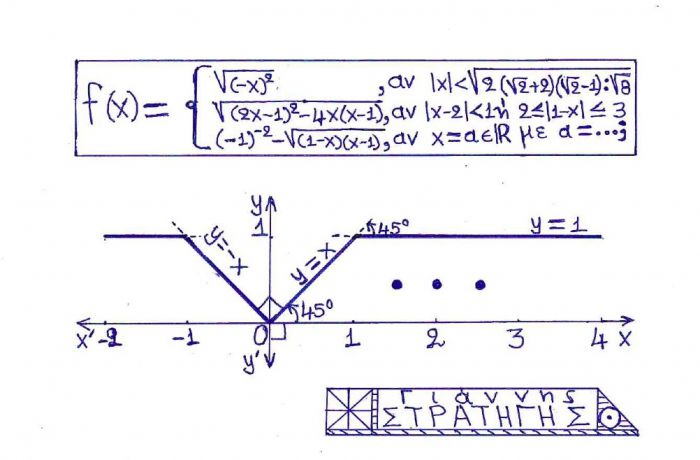 f(x) = { √(-x)² , αν |x|<√2(√2+2)(√2-1):√8
√(2x-1)²-4x(x-1), αν |x-2|<1 ή 2≤|1-x|≤3
(-1)⁻²-√(1-x)(x-1), αν x=α∈ℝ με α=...;
y
1 y=-x y=x 45° y=1
45°
x' -2 -1 0 1 2 3 4 x
y'
Γιάννης
ΣΤΡΑΤΗΓΗΣ